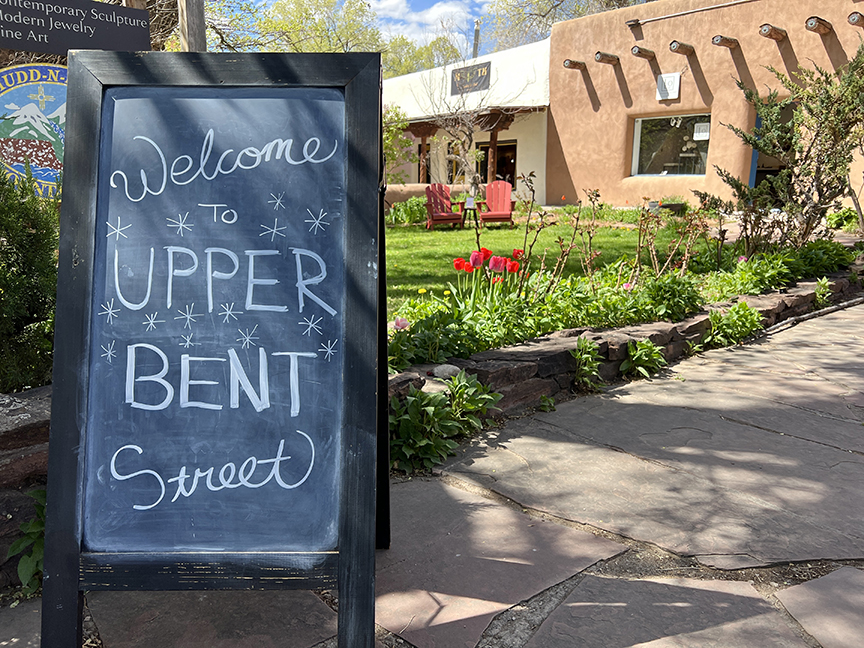 Contemporary Sculpture
Modern Jewelry
Fine Art
Welcome
TO
UPPER
BENT
Street